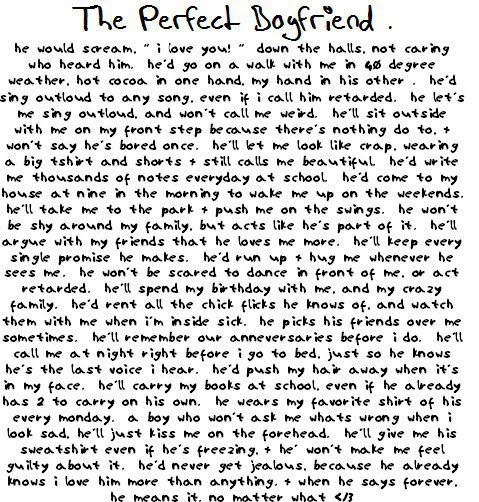 The Perfect Boyfriend .
he would scream, " i love you! " down the halls, not caring
who heard him. he'd go on a walk with me in 40 degree
weather, hot cocoa in one hand, my hand in his other . he'd
sing outloud to any song, even if i call him retarded. he let's
me sing outloud, and won't call me weird. he'll sit outside
with me on my front step because there's nothing do to, +
won't say he's bored once. he'll let me look like crap, wearing
a big tshirt and shorts + still calls me beautiful. he'd write
me thousands of notes everyday at school. he'd come to my
house at nine in the morning to wake me up on the weekends.
he'll take me to the park + push me on the swings. he won't
be shy around my family, but acts like he's part of it. he'll
argue with my friends that he loves me more. he'll keep every
single promise he makes. he'd run up + hug me whenever he
sees me. he won't be scared to dance in front of me, or act
retarded. he'll spend my birthday with me, and my crazy
family. he'd rent all the chick flicks he knows of, and watch
them with me when i'm inside sick. he picks his friends over me
sometimes. he'll remember our anneversaries before i do. he'll
call me at night right before i go to bed, just so he knows
he's the last voice i hear. he'd push my hair away when it's
in my face. he'll carry my books at school, even if he already
has 2 to carry on his own. he wears my favorite shirt of his
every monday. a boy who won't ask me whats wrong when i
look sad, he'll just kiss me on the forehead. he'll give me his
sweatshirt even if he's freezing, + he' won't make me feel
guilty about it. he'd never get jealous, because he already
knows i love him more than anything, + when he says forever,
he means it. no matter what </3